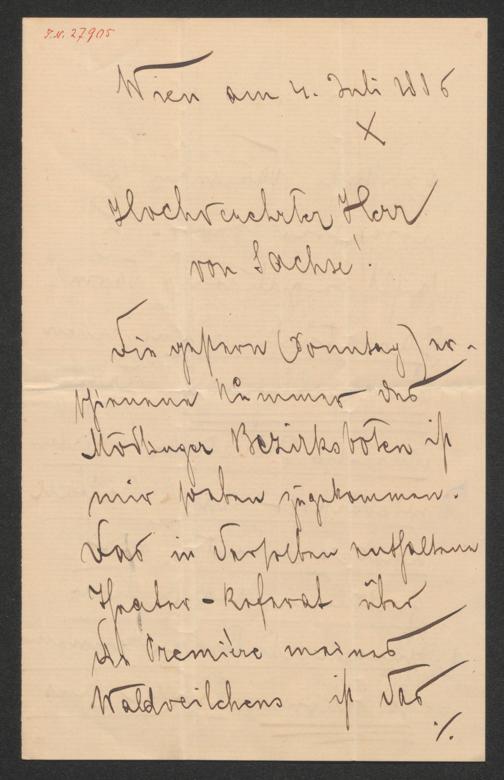 I.N. 27905
Wien am 4. Juli 1886
X
Hochverehrter Herr
von Sachse!
Die gestern (Sonntag) er-
schienene Nummer des
Mödlinger Bezirksboten ist
mir soeben zugekommen.
Das in derselben enthaltene
Theater-Referat über
die Première meines
Waldveilchens ist das
./.